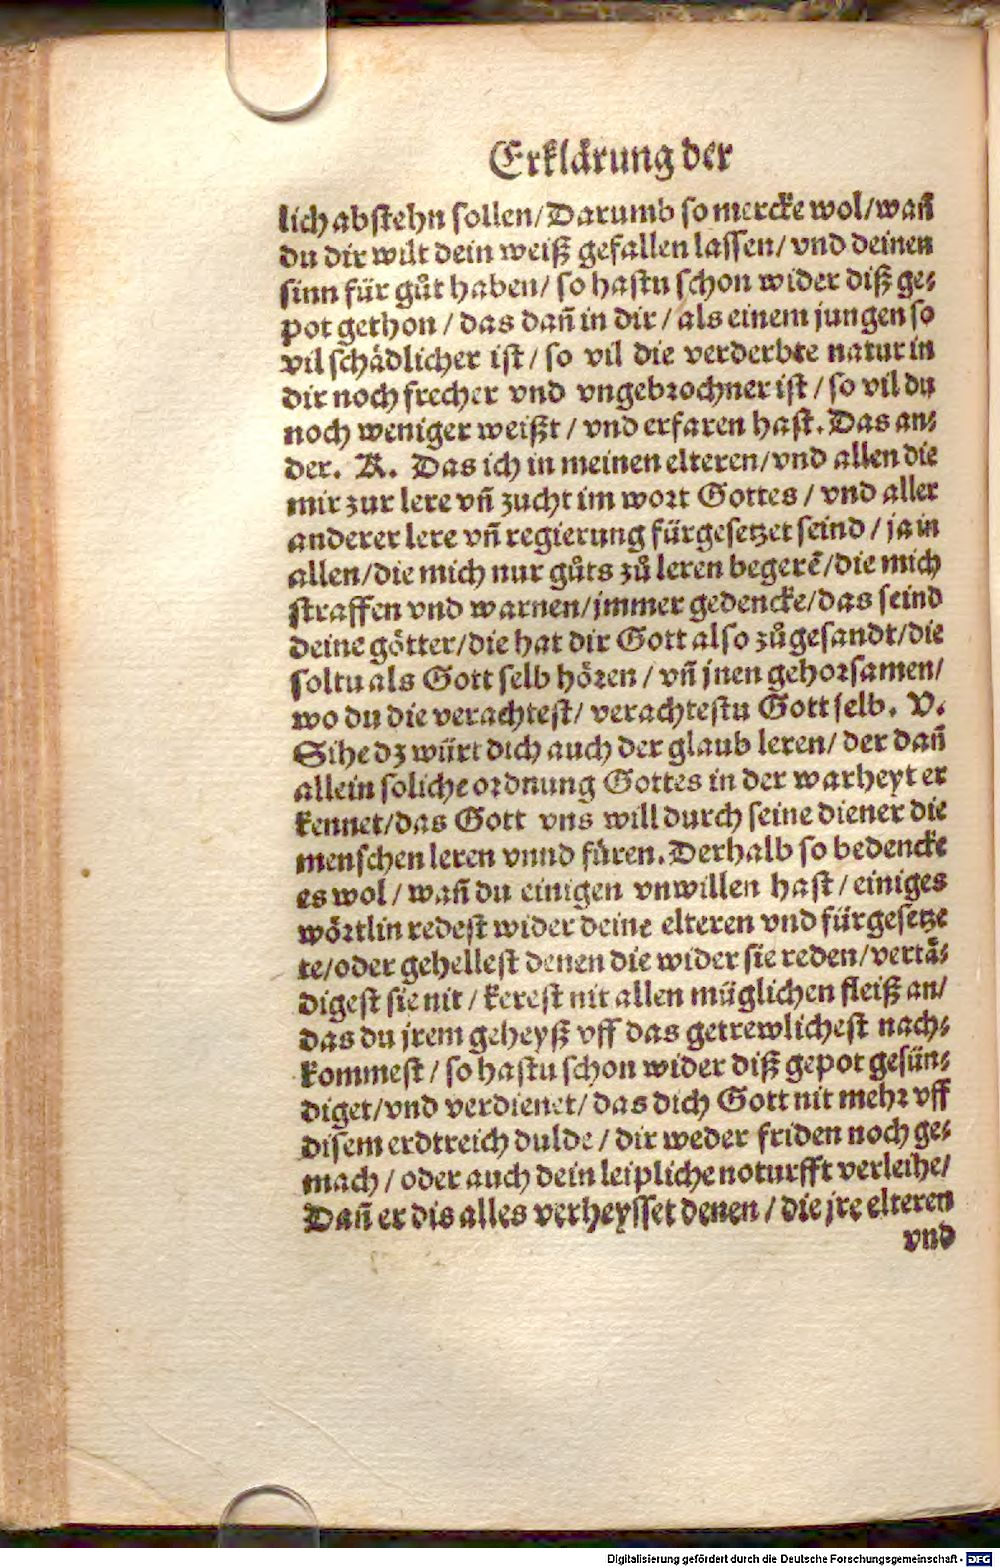 Erklärung der
lich abstehn sollen/Darumb so mercke wol/wañ
du dir wilt dein weiß gefallen lassen/ vnd deinen
sinn für gůt haben/ so hastu schon wider diß ge⸗
pot gethon / das dañ in dir / als einem jungen so
vil schädlicher ist / so vil die verderbte natur in
dir noch frecher vnd vngebrochner ist / so vil du
noch weniger weißt / vnd erfaren hast. Das an⸗
der. K. Das ich in meinen elteren/vnd allen die
mir zur lere vñ zucht im wort Gottes / vnd aller
anderer lere vñ regierung fürgesetzet seind / ja in
allen/die mich nur gůts zů leren begerẽ/die mich
straffen vnd warnen/jmmer gedencke/das seind
deine götter/die hat dir Gott also zůgesandt/die
soltu als Gott selb hören / vñ jnen gehorsamen/
wo du die verachtest/ verachtestu Gott selb. V.
Sihe dz würt dich auch der glaub leren/ der dañ
allein soliche ordnung Gottes in der warheyt er
kennet/das Gott vns will durch seine diener die
menschen leren vnnd fůren. Derhalb so bedencke
es wol / wañ du einigen vnwillen hast / einiges
wörtlin redest wider deine elteren vnd fürgesetze
te/oder gehellest denen die wider sie reden/vertä⸗
digest sie nit / kerest nit allen müglichen fleiß an/
das du jrem geheyß vff das getrewlichest nach⸗
kommest / so hastu schon wider diß gepot gesün⸗
diget/vnd verdienet/ das dich Gott nit mehr vff
disem erdtreich dulde / dir weder friden noch ge⸗
mach / oder auch dein leipliche noturfft verleihe/
Dañ er dis alles verheysset denen / die jre elteren
vnd
Digitalisierung gefördert durch die Deutsche Forschungsgemeinschaft - DFG